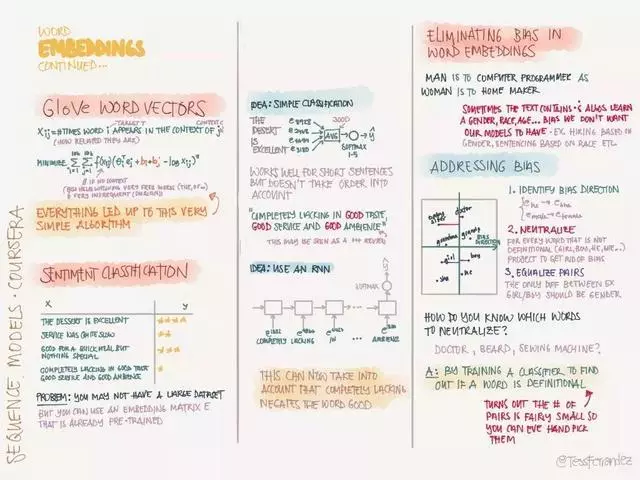 WORD
EMBEDDINGS
CONTINUED...
GloVe WORD VECTORS
TARGET T
CONTEXT C
Xij = #TIMES WORD i APPEARS IN THE CONTEXT OF j
(HOW RELATED THEY ARE)
MINIMIZE
IF NO CONTEXT
EVERYTHING LED UP TO THIS VERY
SIMPLE ALGORITHM
SENTIMENT CLASSIFICATION
X y
THE DESSERT IS EXCELLENT ★★★★
SERVICE WAS QUITE SLOW ★★
GOOD FOR A QUICK MEAL BUT
NOTHING SPECIAL
COMPLETELY LACKING IN GOOD TASTE
GOOD SERVICE AND GOOD AMBIENCE
PROBLEM: YOU MAY NOT HAVE A LARGE DATASET
BUT YOU CAN USE AN EMBEDDING MATRIX E
THAT IS ALREADY PRE-TRAINED
SEQUENCE MODELS · COURSERA
IDEA: SIMPLE CLASSIFICATION
THE
DESSERT
IS
EXCELLENT
AVG
300D
SOFTMAX
1-5
WORKS WELL FOR SHORT SENTENCES
BUT DOESN'T TAKE ORDER INTO
ACCOUNT
"COMPLETELY LACKING IN GOOD TASTE,
GOOD SERVICE AND GOOD AMBIENCE"
THIS MAY BE SEEN AS A +++ REVIEW
IDEA: USE AN RNN
SOFTMAX
COMPLETELY LACKING IN ... AMBIENCE
THIS CAN NOW TAKE INTO
ACCOUNT THAT COMPLETELY LACKING
NEGATES THE WORD GOOD
ELIMINATING BIAS IN
WORD EMBEDDINGS
MAN IS TO COMPUTER PROGRAMMER AS
WOMAN IS TO HOME MAKER
SOMETIMES THE TEXT CONTAINS & ALGOS LEARN
A GENDER, RACE, AGE... BIAS WE DON'T WANT
OUR MODELS TO HAVE · EX HIRING BASED ON
GENDER, SENTENCING BASED ON RACE ETC.
ADDRESSING BIAS
doctor
grandma
girl
boy
she
he
BIAS
DIRECTION
1. IDENTIFY BIAS DIRECTION
e he → e she
e male → e female
2. NEUTRALIZE
FOR EVERY WORD THAT IS NOT
DEFINITIONAL (GIRL, BOY, HE, WE...)
PROJECT TO GET RID OF BIAS
3. EQUALIZE PAIRS
THE ONLY DIFF BETWEEN EX
GIRL/BOY SHOULD BE GENDER
HOW DO YOU KNOW WHICH WORDS
TO NEUTRALIZE?
DOCTOR, BEARD, SEWING MACHINE?
A: BY TRAINING A CLASSIFIER TO FIND
OUT IF A WORD IS DEFINITIONAL
TURNS OUT THE # OF
PAIRS IS FAIRLY SMALL SO
YOU CAN EVE HAND PICK
THEM
@TessFerrandez